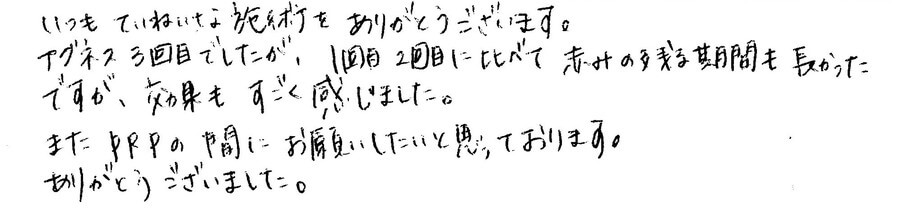 いつもていねいな施術をありがとうございます。
アグネス3回目でしたが、1回目2回目に比べて赤みの残る期間も長かった
ですが、効果もすごく感じました。
またPRPの間にお願いしたいと思っております。
ありがとうございました。